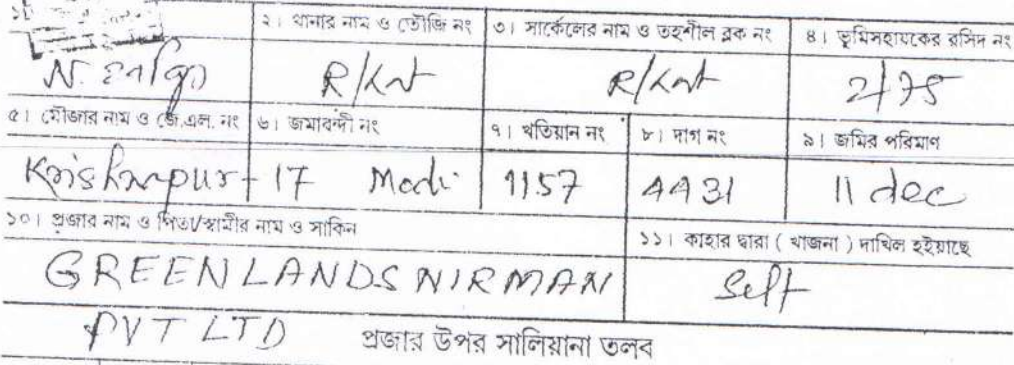 ২। থানার নাম ও তৌজি নং ৩। সার্কেলের নাম ও তহশীল ব্লক নং ৪। ভূমিসহায়কের রসিদ নং
R/Knt R/Knt 2/75
৫। মৌজার নাম ও জে.এল. নং ৬। জমাবন্দী নং ৭। খতিয়ান নং ৮। দাগ নং ৯। জমির পরিমাণ
Krishnapur - 17 1157 4431 11 dec
১০। প্রজার নাম ও পিতা/স্বামীর নাম ও সাকিন ১১। কাহার দ্বারা ( খাজনা ) দাখিল হইয়াছে
GREENLANDS NIRMAN Self
PVT LTD প্রজার উপর সালিয়ানা তলব